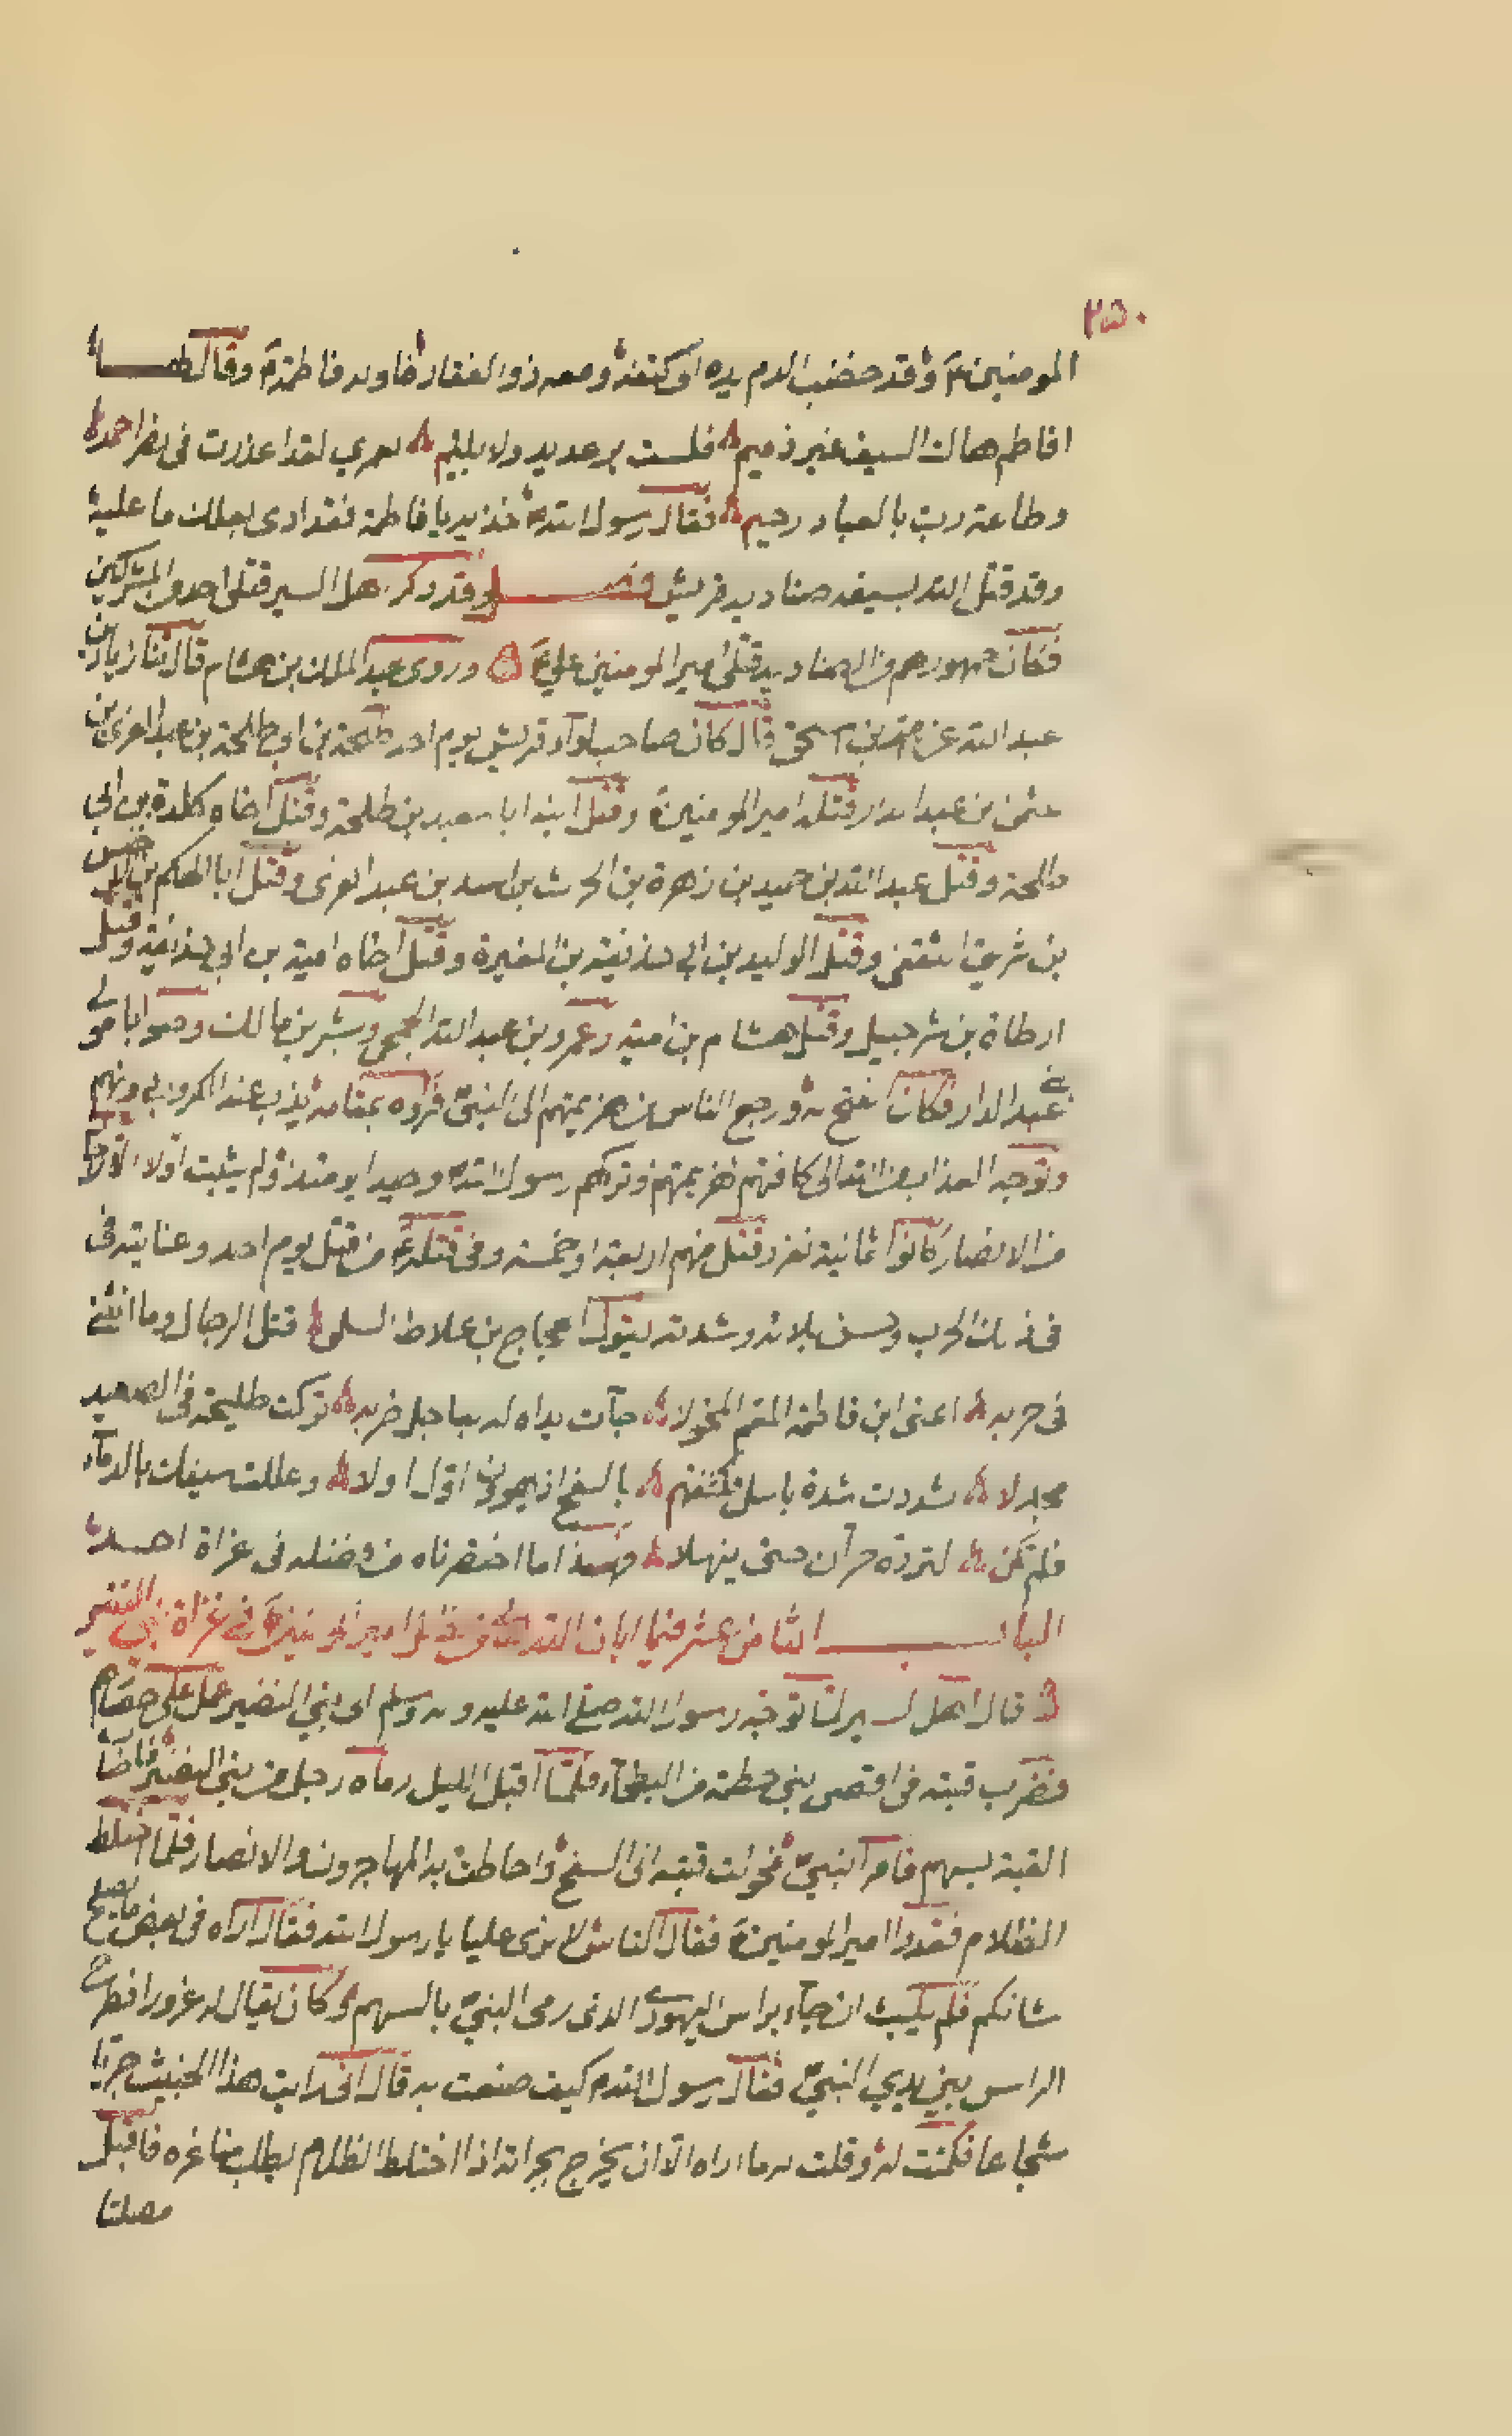 ٢٥٠
المومنين ع وقد خضب الدم يده الى كتفه ومعه ذو الفقار فناوله فاطمة ع وقال لها
افاطم هاك السيف غير ذميم فلست برعديد ولا بلئيم لعمري لقد اعذرت في نصر احمد
وطاعة رب بالعباد رحيم فقال رسول الله خذيه يا فاطمة فقد ادى بعلك ما عليه
وقد قتل الله بسيفه صناديد قريش فصل وقد ذكر اهل السير قتلى احد من المشركين
فكان جمهورهم من الصناديد قتلى امير المومنين علي ع وروى عبد الملك بن هشام قال ثنا زياد بن
عبد الله عن محمد بن اسحق قال كان صاحب لوآء قريش يوم احد طلحة بن ابي طلحة بن عبد العزى بن
عثمن بن عبد الدار قتله امير المومنين ع وقتل ابنه ابا سعيد بن طلحة وقتل اخاه كلدة بن ابي
طلحة وقتل عبد الله بن حميد بن زهرة بن الحرث بن اسد بن عبد العزى وقتل ابا الحكم بن الاخنس
بن شريق الثقفي وقتل الوليد بن ابي حذيفة بن المغيرة وقتل اخاه امية بن ابي حذيفة وقتل
ارطاة بن شرحبيل وقتل هشام بن امية وعمرو بن عبد الله الجمحي وبشر بن مالك وصوابا مولى
بني عبد الدار فكان الفتح له ورجع الناس من هزيمتهم الى النبي بمقامه يذب عنه دونهم
وتوجه العتاب من الله الى كافتهم لهزيمتهم وتركهم رسول الله وحيدا يومئذ ولم يثبت اولا الا
من الانصار كانوا ثمانية نفر وقتل منهم اربعة او خمسة وفي قتله ع من قتل يوم احد وعنايته في
في ذلك الحرب وحسن بلائه وشدته يقول الحجاج بن علاط السلمي قتل الرجال وما انثنى
في حربه اعني ابن فاطمة المعم المخولا جآت يداه له بعاجل ضربة تركت طليحة في الصعيد
مجدلا شددت شدة باسل فكشفتهم بالسفح اذ يهوون اول اولا وعللت سيفك بالدمآء
فلم تكن لترده حرآن حتى ينهلا فهذا ما اختصرناه من فضله في غزاة احد
الباب الثامن عشر فيما ابان الله تعالى من فضل امير المومنين ع في غزاة بني النضير
قال اهل السير لما توجه رسول الله صلى الله عليه وآله وسلم الى بني النضير عمل على حصارهم
فضرب قبته في اقصى بني حطمة من البطحآء فلما اقبل الليل رماه رجل من بني النضير فاصاب
القبة بسهم فامر النبي فحولت قبته الى السفح واحاطت به المهاجرون والانصار فلما اختلط
الظلام فقدوا امير المومنين ع فقال الناس لا نرى عليا يا رسول الله فقال اراه في بعض ما يصلح
شانكم فلم يلبث ان جآء براس اليهودي الذي رمى النبي بالسهم وكان يقال له عزورا فطرح
الراس بين يدي النبي فقال رسول الله كيف صنعت به قال اني رايت هذا الخبيث جريا
شجاعا فكمنت له وقلت له ما اراه الا ان يخرج بجراته اذا اختلط الظلام يطلب منا غره فاقبل
مصلتا